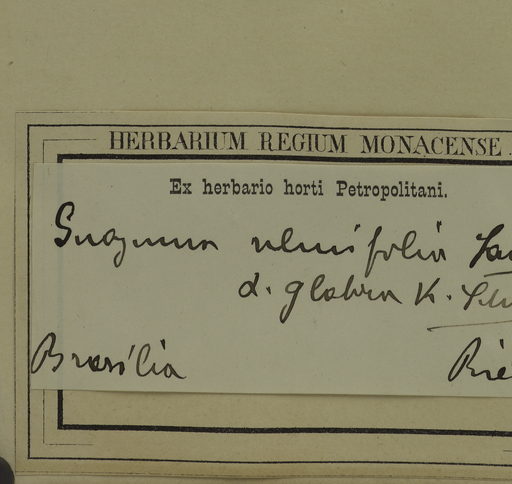 HERBARIUM REGIUM MONACENSE.
Ex herbario horti Petropolitani.
Guazuma ulmifolia
α. glabra K. Sch
Brasilia Rie